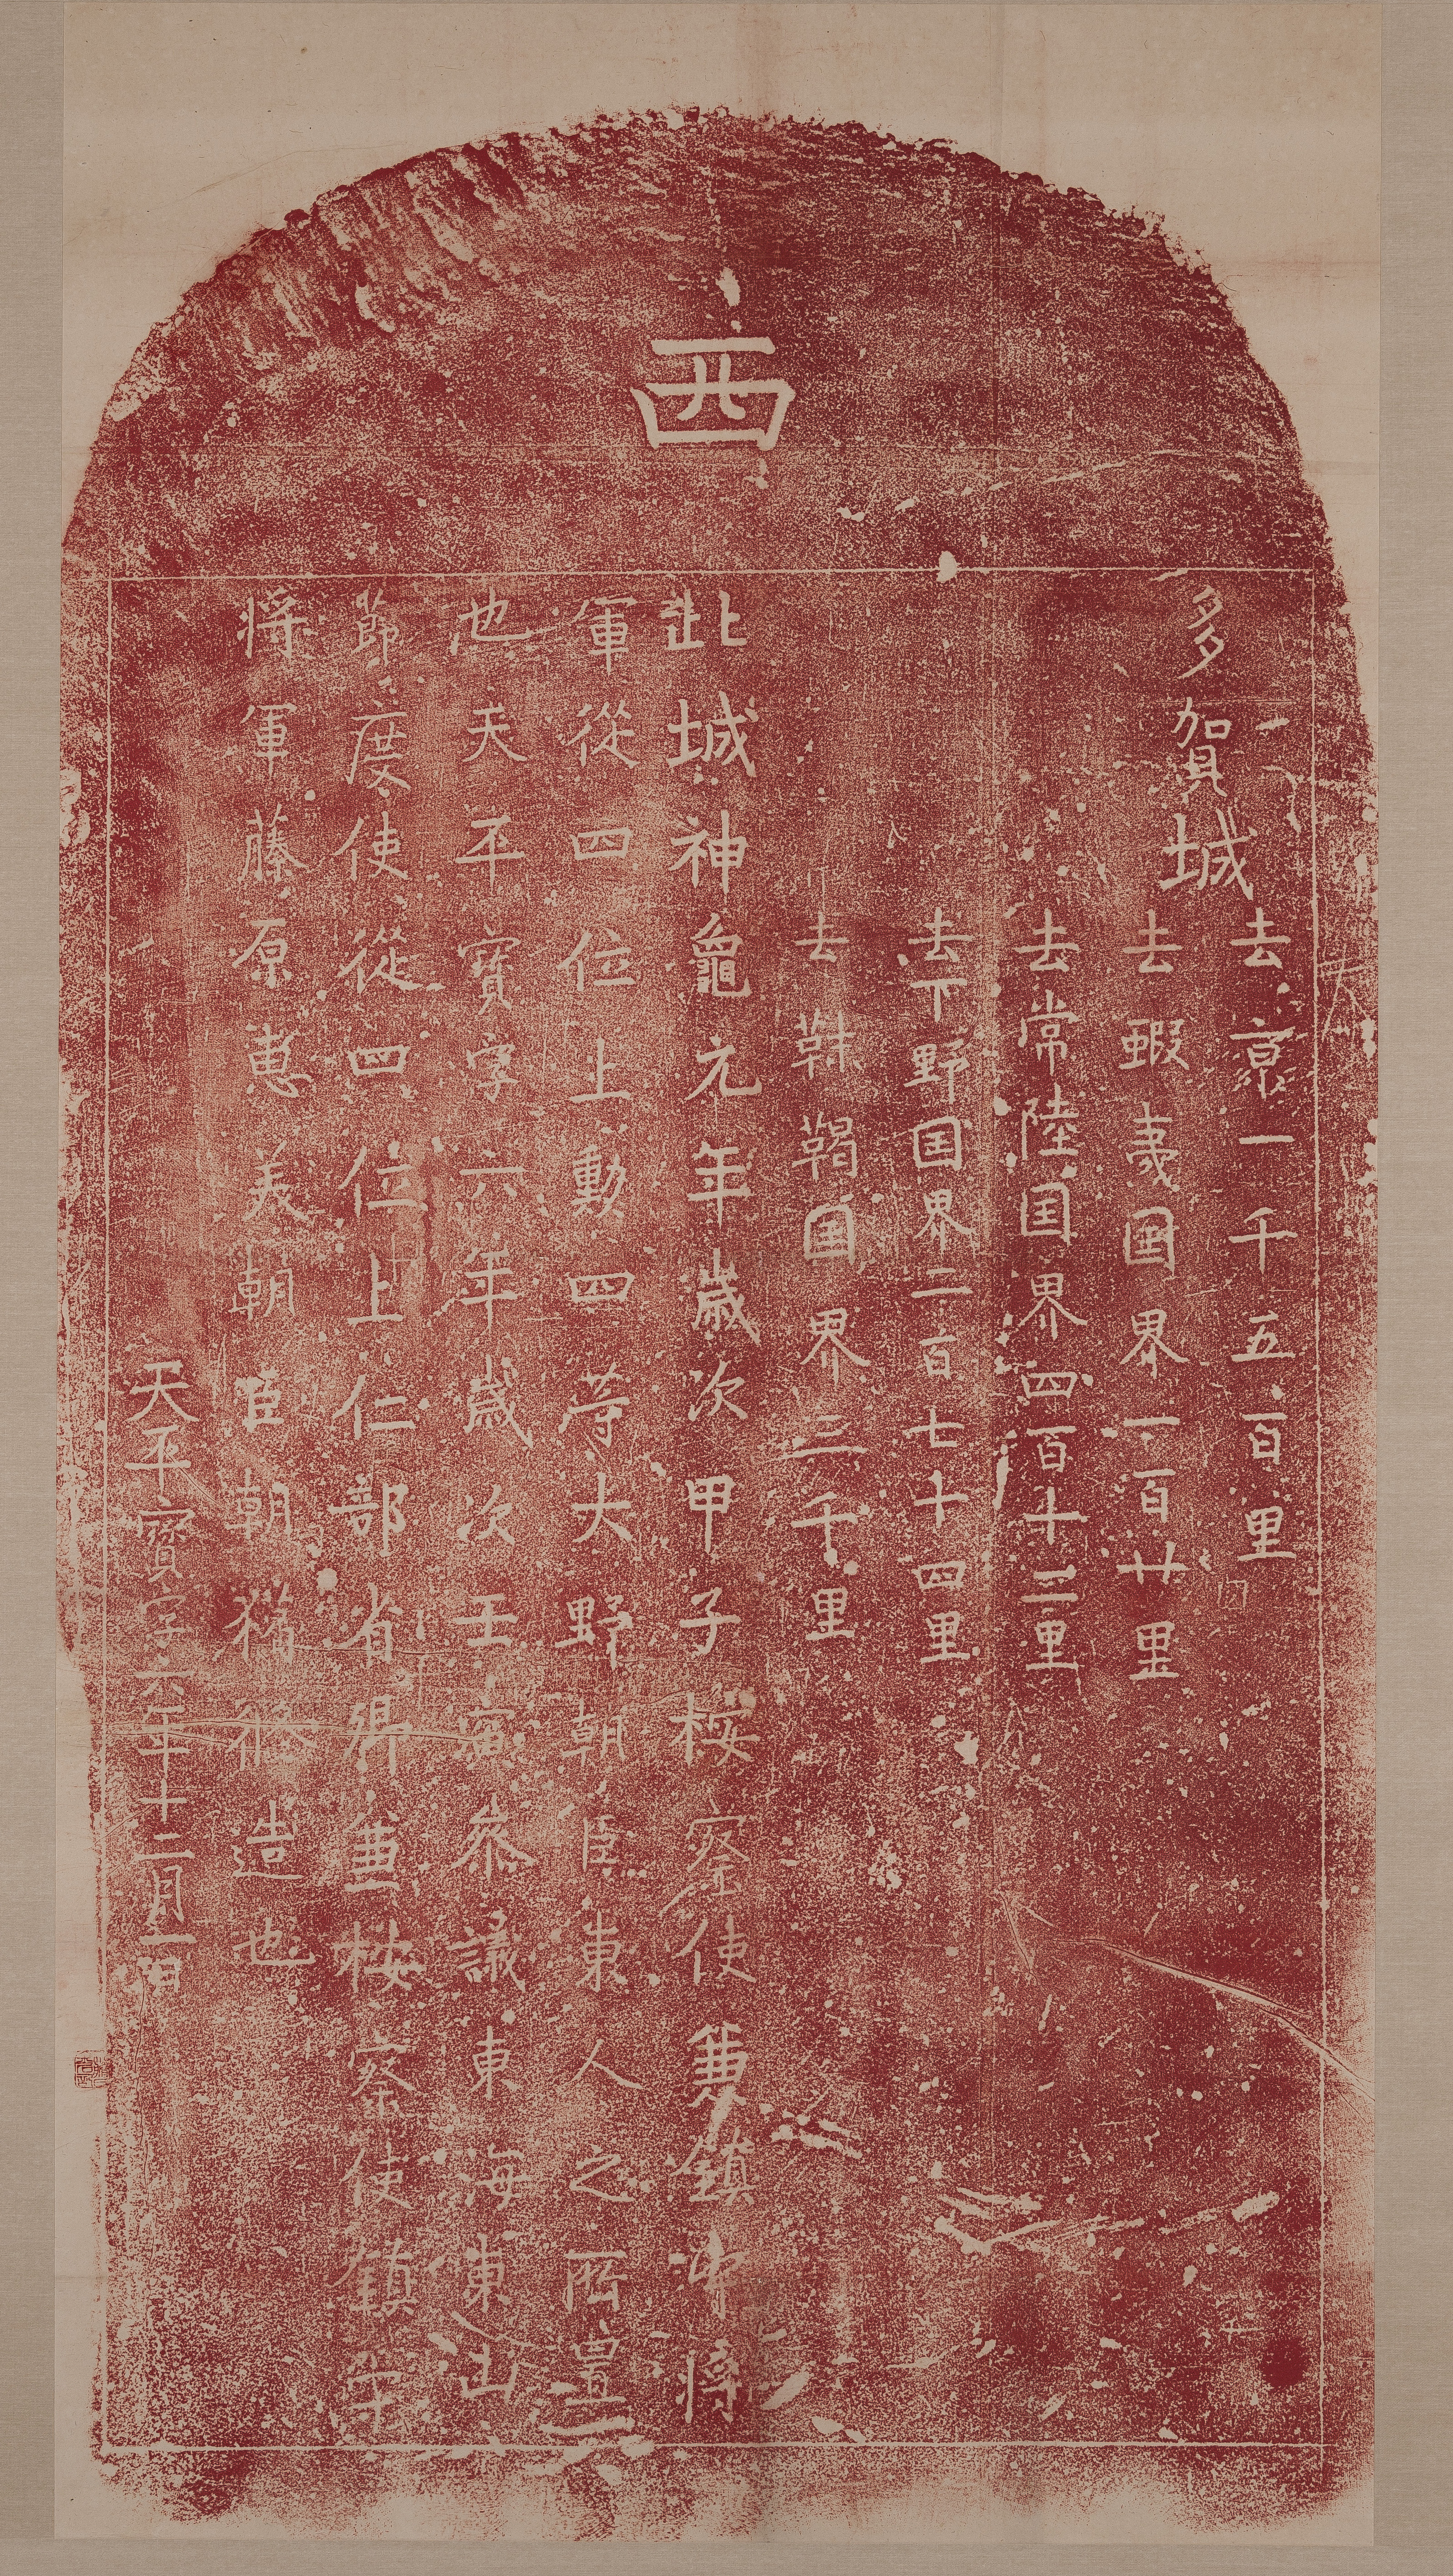 西
多賀城
去京一千五百里
去蝦夷国界一百廿里
去常陸国界四百十二里
去下野国界二百七十四里
去靺鞨国界三千里
此城神龜元年歳次甲子桉察使兼鎮守将
軍從四位上勳四等大野朝臣東人之所置
也天平寶字六年歳次壬寅參議東海東山
節度使從四位上仁部省卿兼桉察使鎮守
将軍藤原惠美朝臣朝獦修造也
天平寶字六年十二月一日